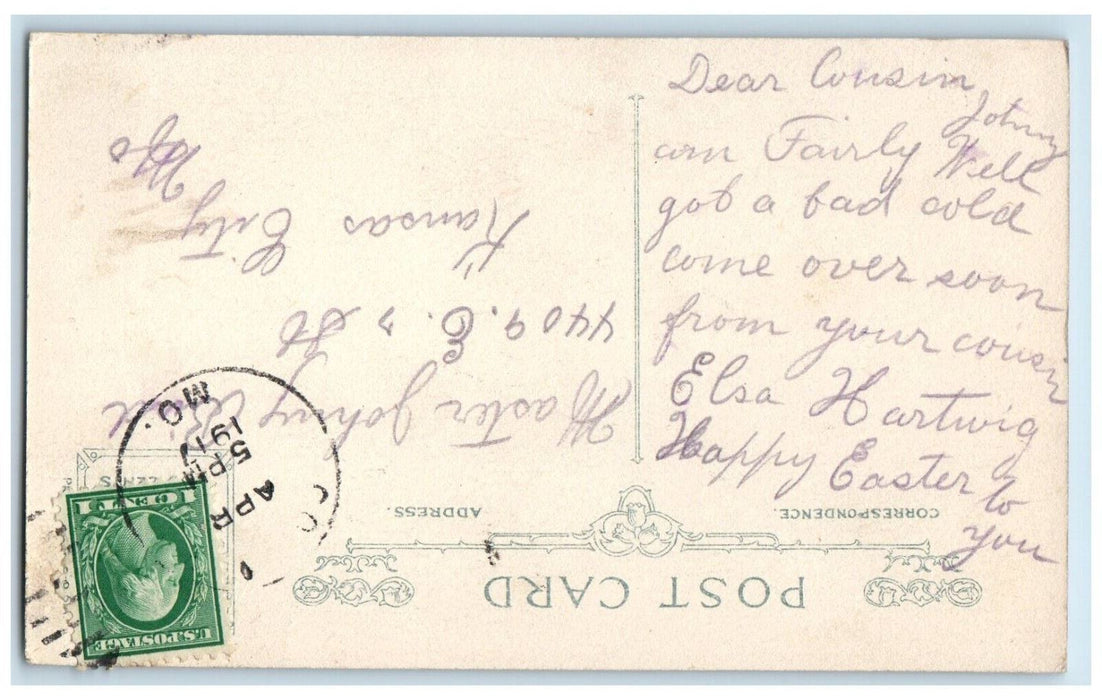 Dear Cousin
Johny
am Fairly Well
got a bad cold
come over soon
from your cousin
Elsa Hartwig
Happy Easter to
you
POST CARD
CORRESPONDENCE.
ADDRESS.
Master Johny
4409. E. St
Kansas
City Mo
APR
5 PM
1917
MO.
U.S. POSTAGE
1 CENT 1